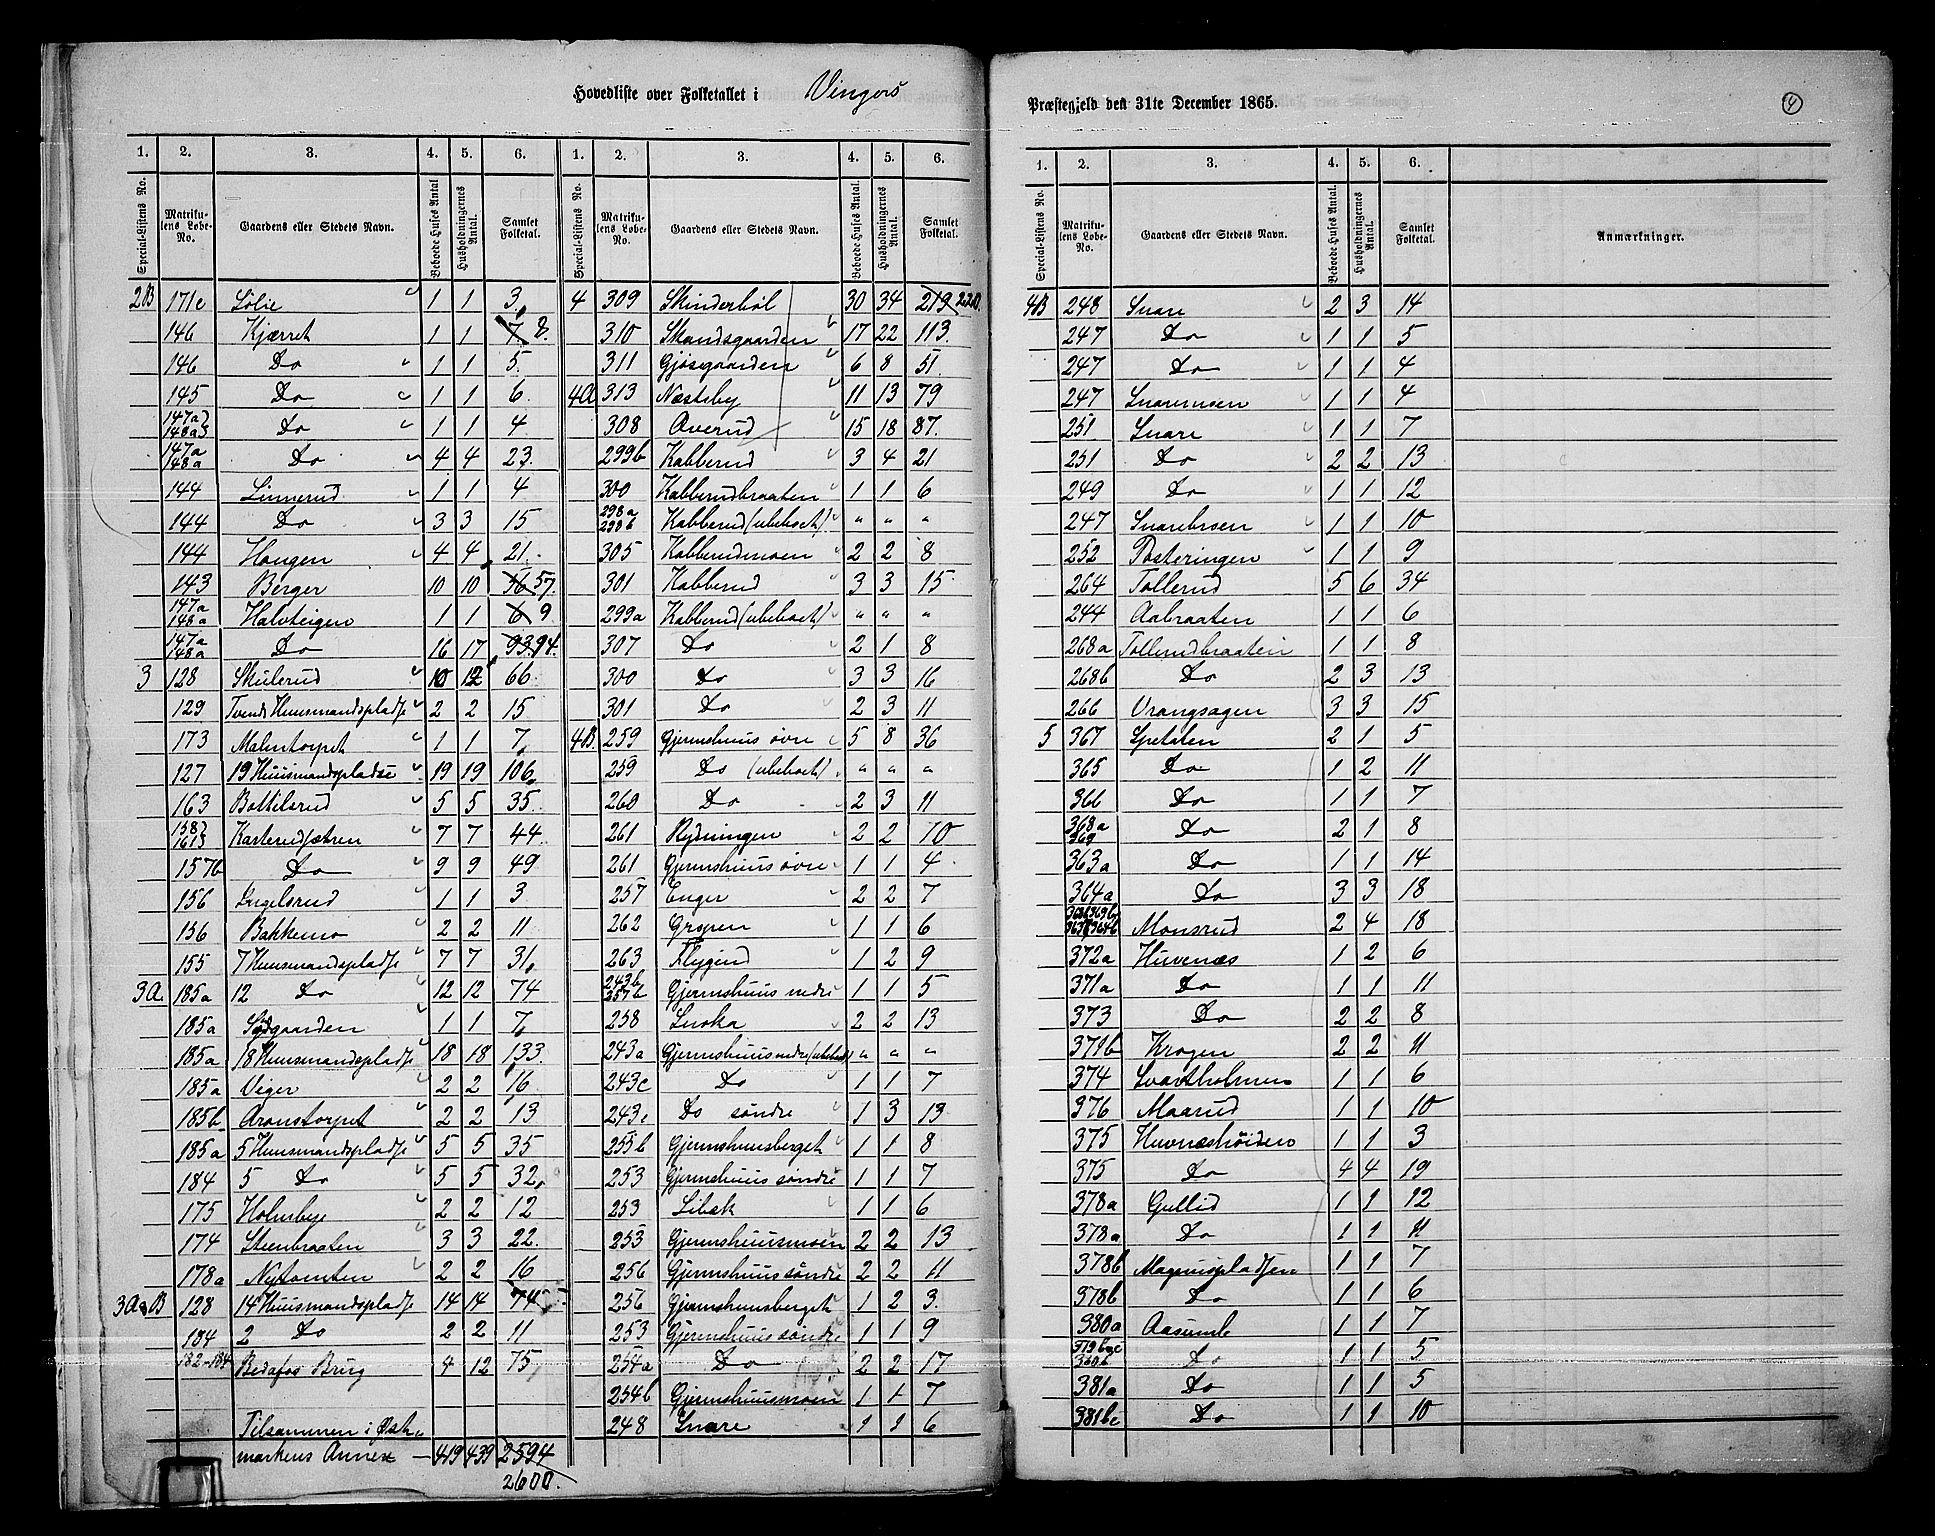 Hovedliste over Folketallet i Vingers
1. 2. 3. 4. 5. 6. 1. 2. 3. 4. 5. 6.
Special-Listens No. Matrikulens Løbe-No. Gaardens eller Stedets Navn. Beboede Huses Antal Husholdningernes Antal. Samlet Folketal. Special-Listens No. Matrikulens Løbe-No. Gaardens eller Stedets Navn. Beboede Huses Antal Husholdningernes Antal. Samlet Folketal.
2B 171c Lølie 1 1 3. 4 309 Skinderbøl 30 34 219 220.
146 Kjærret 1 1 7. 8. 310 Skandsgaarden 17 22 113.
146 Do 1 1 5. 311 Gjøsgaarden 6 8 51.
145 Do 1 1 6. 4A 313 Næsteby 11 13 79
147a 148a Do 1 1 4 308 Overud 15 18 87.
147a 148a Do 4 4 23. 299b Kabberud 3 4 21
144 Linnerud 1 1 4 300 Kabberudbraaten 1 1 6
144 Do 3 3 15 298a 298b Kabberud (ubeboet) " " "
144 Haugen 4 4 21. 305 Kabberudmoen 2 2 8
143 Berger 10 10 56 57. 301 Kabberud 3 3 15
147a 148a Halvteigen 1 1 6 9 299a Kabberud (ubeboet) " " "
147a 148a Do 16 17 93. 94. 307 Do 2 1 8
3 128 Skulerud 10 12 66. 300 Do 3 3 16
129 Tvende Huusmandspladse 2 2 15 301 Do 2 3 11
173 Malmtorpet 1 1 7. 4B. 259 Gjermshuus øvre 5 8 36
127 19 Huusmandspladse 19 19 106. 259 Do (ubeboet) " " "
163 Bottilsrud 5 5 35. 260 Do 2 3 11
158 161 Karterudsætren 7 7 44. 261 Rydningen 2 2 10
157b Do 9 9 49. 261 Gjermshuus øvre 1 1 4
156 Ingelsrud 1 1 3 257 Enger 2 2 7
156 Bakkemo 2 2 11 262 Gropen 1 1 6
155 7 Huusmandspladse 7 7 31. 263 Flygind 1 2 9
3A. 185a 12 Do 12 12 74 243b 257b Gjermshuus nedre 1 1 5
185a Sødgaarden 1 1 7. 258 Snoka 2 2 13
185a 18 Huusmandspladse 18 18 133. 243a Gjermshuus nedre (ubeboet) " " "
185a Viger 2 2 16. 243c Do 1 1 7
185b Aronstorpet 2 2 13 243c Do søndre 1 3 13
185a 5 Huusmandspladse 5 5 35 255b Gjermshuusberget 1 1 8
184 5 Do 5 5 32. 253 Gjermshuus søndre 1 1 7
175 Holmbye 2 2 12 253 Libak 1 1 6
174 Steenbraaten 3 3 22. 253 Gjermshuusmoen 2 2 13
178a Nytomten 2 2 16 256 Gjermshuus søndre 2 2 11
3A & B 128 14 Huusmandspladse 14 14 74 256 Gjermshuusberget 1 2 3.
184 2 Do 2 2 11 253 Gjermshuus søndre 1 1 9
182-184 Bedafos Brug 4 12 75, 254a Do 2 2 17
254b Gjermshuusmoen 1 1 7
Tilsammen i Øst- 248 Snare 1 1 6
markens Annex - 419 439 2594
2600.
Præstegjeld den 31te December 1865.
4
1. 2. 3. 4. 5. 6.
Special-Listens No. Matrikulens Løbe-No. Gaardens eller Stedets Navn. Beboede Huses Antal. Husholdningernes Antal. Samlet Folketal. Anmærkninger.
4B 248 Snare 2 3 14
247 Do 1 1 5
247 Do 1 1 4
247 Snaremoen 1 1 4
251 Snare 1 1 7
251 Do 2 2 13
249 Do 1 1 12
247 Snarebroen 1 1 10
252 Posteringen 1 1 9
264 Tollerud 5 6 34
244 Aabraaten 1 1 6
268a Tollerudbraaten 1 1 8
268b Do 2 3 13
266 Vrangsagen 3 3 15
5 367 Spetalen 2 1 5
365 Do 1 2 11
366 Do 1 1 7
368a 369 Do 2 1 8
363a Do 1 1 14
364a Do 3 3 18
Monsrud 2 4 18
372a Huvenæs 1 2 6
371a Do 1 1 11
373 Do 2 2 8
371b Krogen 2 2 11
374 Svartholmen 1 1 6
376 Maarud 1 1 10
375 Huvnæshøiden 1 1 3
375 Do 4 4 19
378a Gullid 1 1 12
378a Do 1 1 11
378b Magnuspladsen 1 1 7
378b Do 1 1 6
380a Aasumb 1 1 7
Do 1 1 5
381a Do 1 1 5
381bc Do 1 1 10